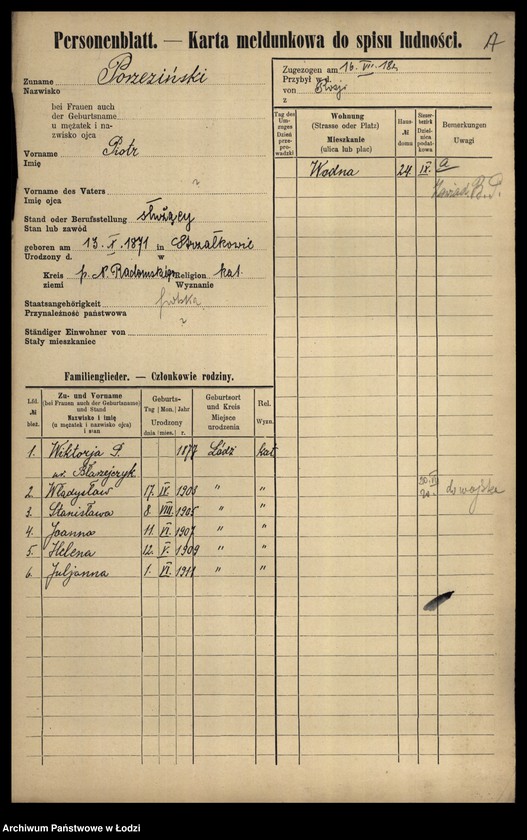 Personenblatt. — Karta meldunkowa do spisu ludności.
A
Zuname Porzeziński
Nazwisko
bei Frauen auch
der Geburtsname
u mężatek i na-
zwisko ojca
Vorname Piotr
Imię
Vorname des Vaters ?
Imię ojca
Stand oder Berufsstellung służący
Stan lub zawód
geboren am 13. X. 1871 in Strzałkowie
Urodzony d. w
Kreis p. N. Radomskiego Religion kat.
ziemi Wyznanie
Staatsangehörigkeit polska
Przynależność państwowa
Ständiger Einwohner von ?
Stały mieszkaniec
Zugezogen am 16. VII. 18
Przybył w d.
von
z
Tag des Um-zuges Dzień prze-prowadzki
Wohnung (Strasse oder Platz) Mieszkanie (ulica lub plac)
Haus-№ domu
Steuer-bezirk Dziel-nica podat-kowa
Bemerkungen Uwagi
Wodna 24 IX. a
B.P.
Familienglieder. — Członkowie rodziny.
Lfd. № bież.
Zu- und Vorname (bei Frauen auch der Geburtsname) und Stand Nazwisko i imię (u mężatek i nazwisko ojca) i stan
Geburts- Tag Mon. Jahr Urodzony dnia mies. r.
Geburtsort und Kreis Miejsce urodzenia
Rel. Wyzn.
1. Wiktorja P. 1877 Łódź kat.
ur. Błażejczyk
2. Władysław 17. IX. 1903 " " do wojska
3. Stanisława 8. VIII. 1905 " "
4. Joanna 11. VI. 1907 " "
5. Helena 12. V. 1909 " "
6. Juljanna 1. VI. 1911 " "
Archiwum Państwowe w Łodzi